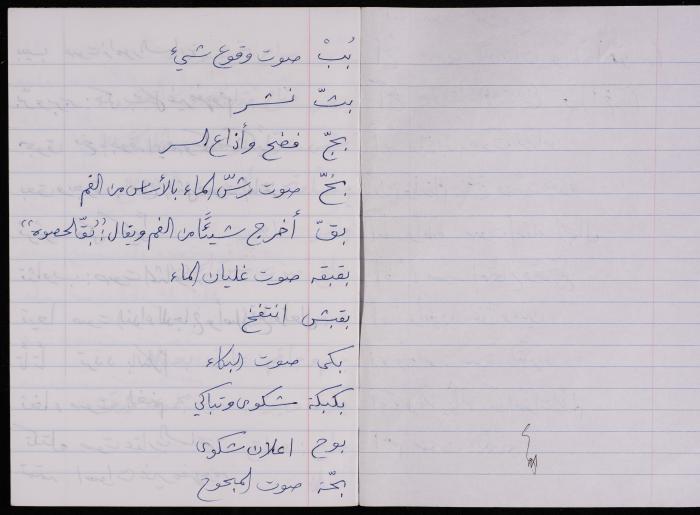 بُبْ صوت وقوع شيء
بثّ نشر
بجّ فضح وأذاع السر
بخّ صوت رشّ الماء بالأساس من الفم
بقّ أخرج شيئًا من الفم ويقال: "بقّ الحصوه"
بقبقه صوت غليان الماء
بقبش انتفخ
بكى صوت البكاء
بكبكة شكوى وتباكي
بوح اعلان شكوى
بحّة صوت المبحوح